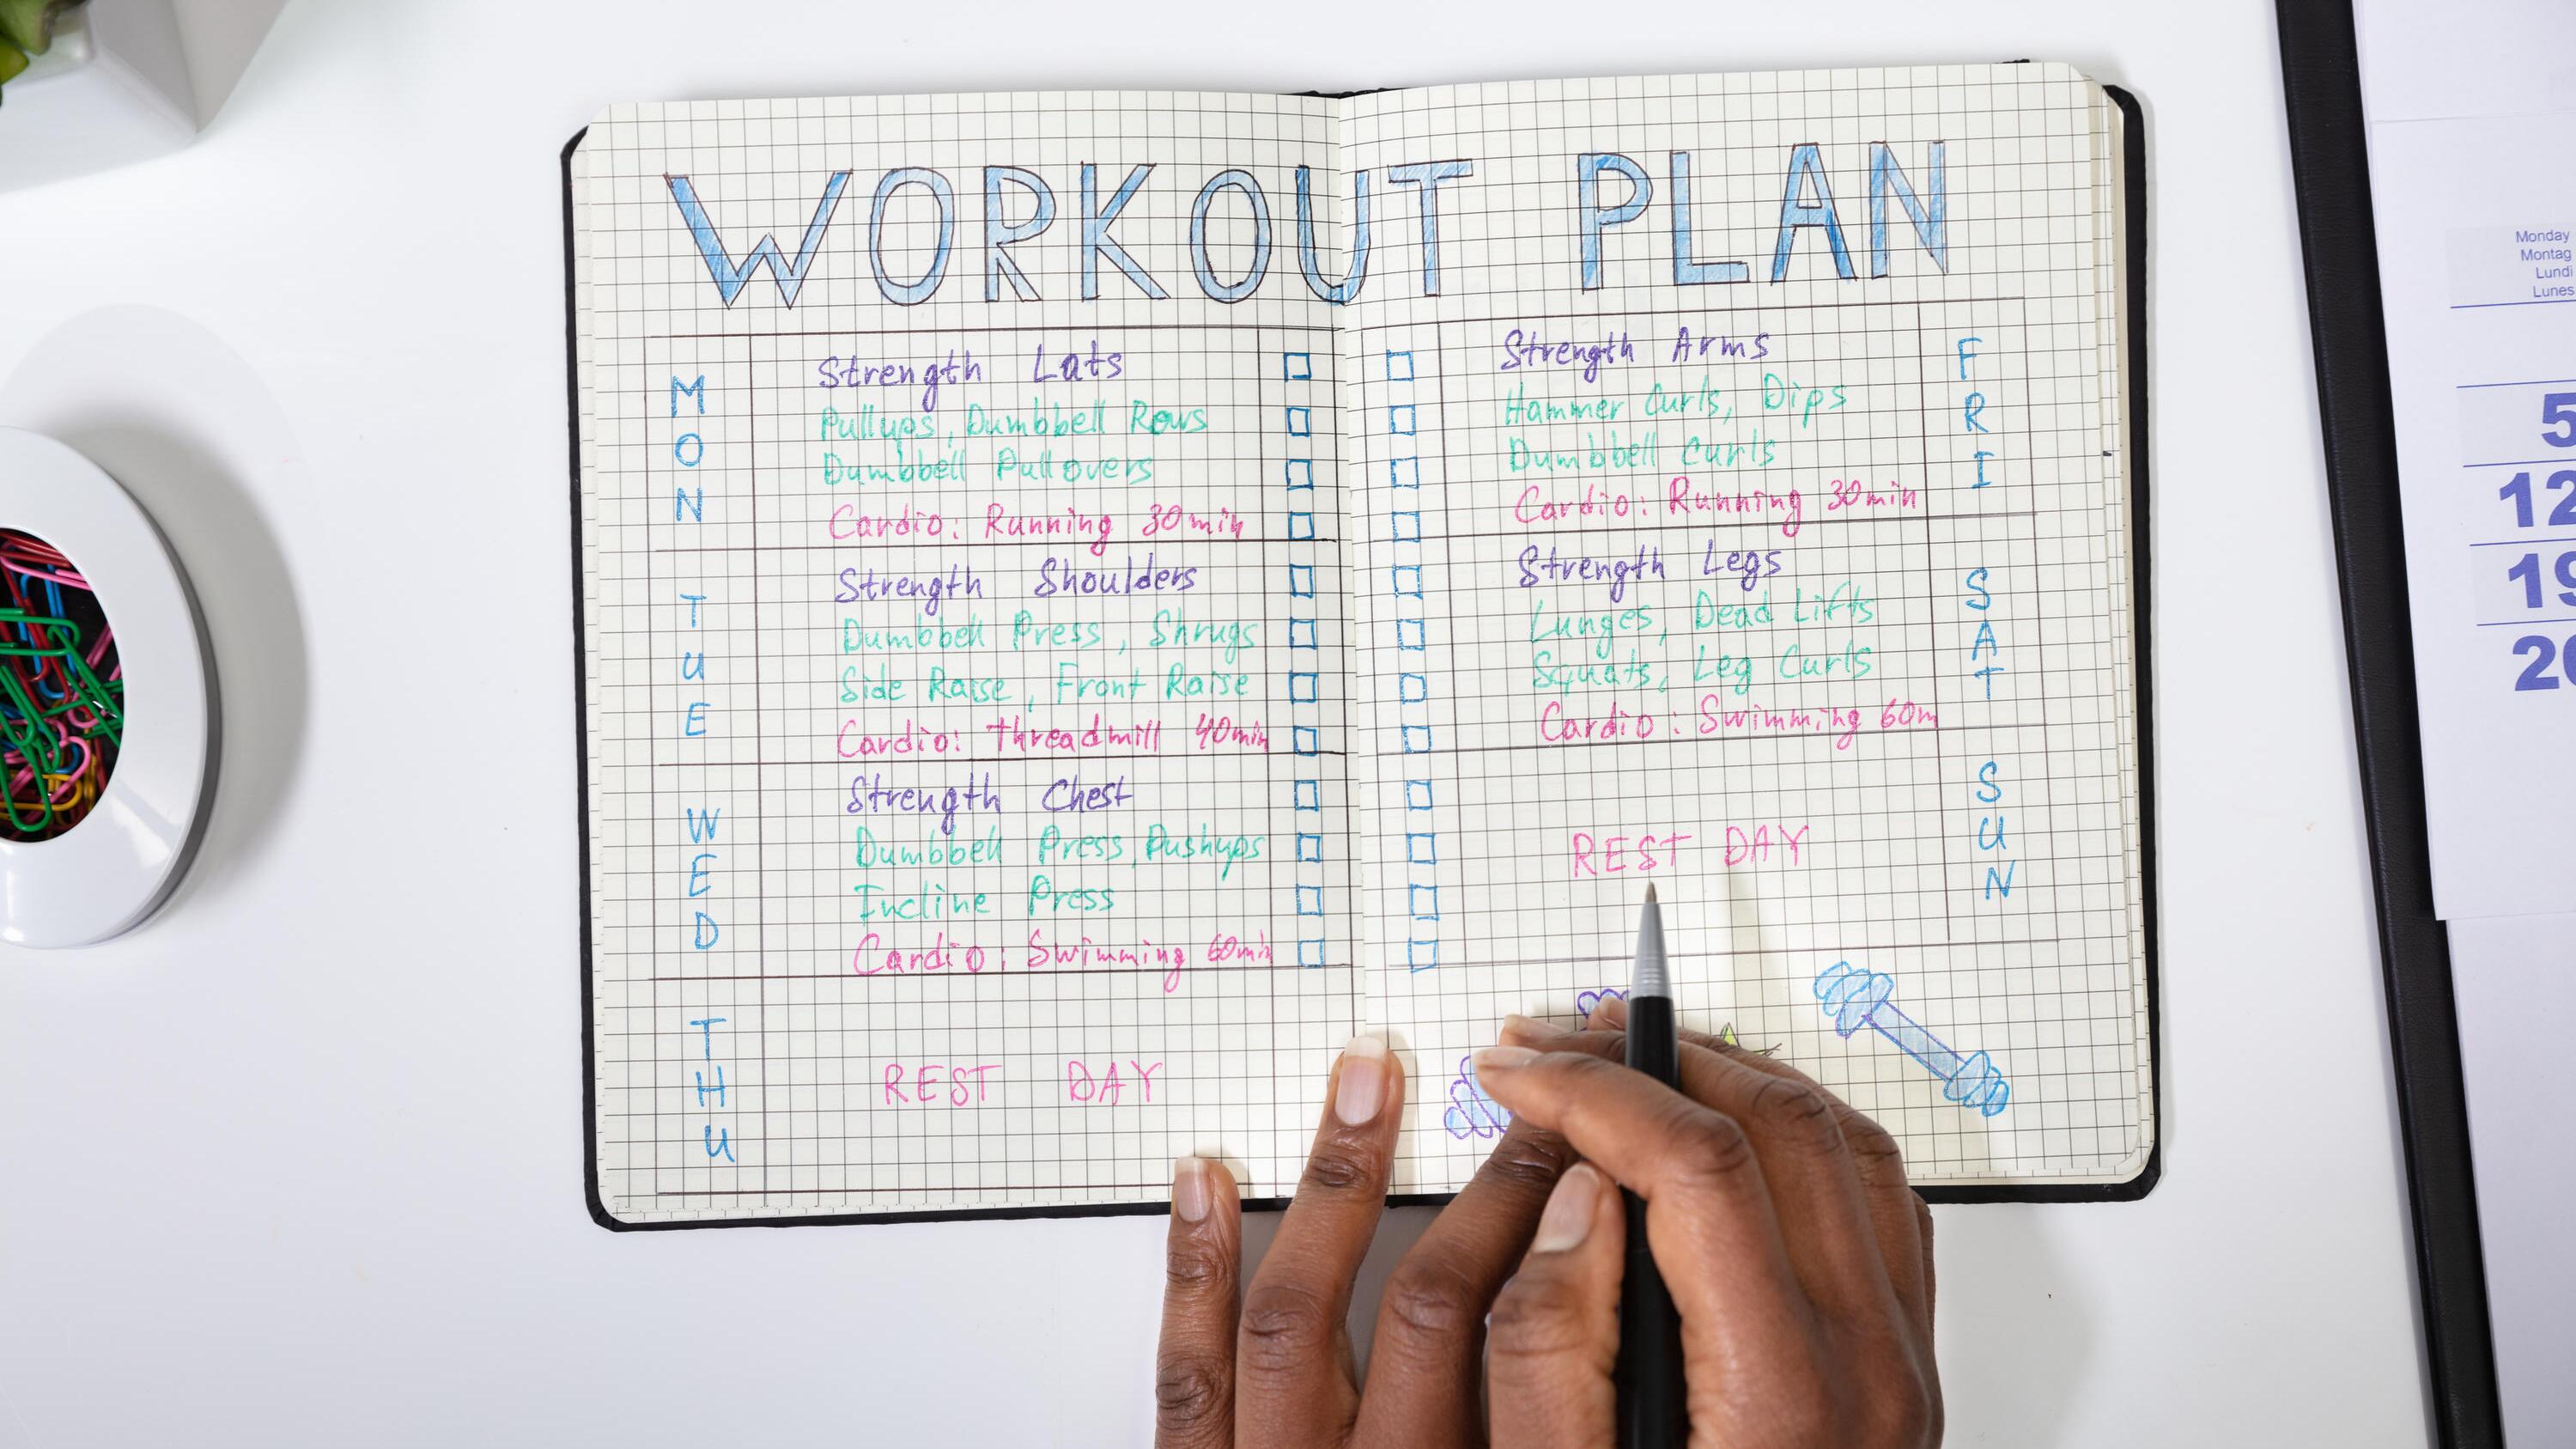 WORKOUT PLAN
MON
Strength Lats
Pullups, Dumbbell Rows
Dumbbell Pullovers
Cardio: Running 30min
TUE
Strength Shoulders
Dumbbell Press, Shrugs
Side Raise, Front Raise
Cardio: threadmill 40min
WED
Strength Chest
Dumbbell Press, Pushups
Incline Press
Cardio: Swimming 60min
THU
REST DAY
FRI
Strength Arms
Hammer Curls, Dips
Dumbbell Curls
Cardio: Running 30min
SAT
Strength Legs
Lunges, Dead Lifts
Squats, Leg Curls
Cardio: Swimming 60m
SUN
REST DAY
Monday
Montag
Lundi
Lunes
5
12
19